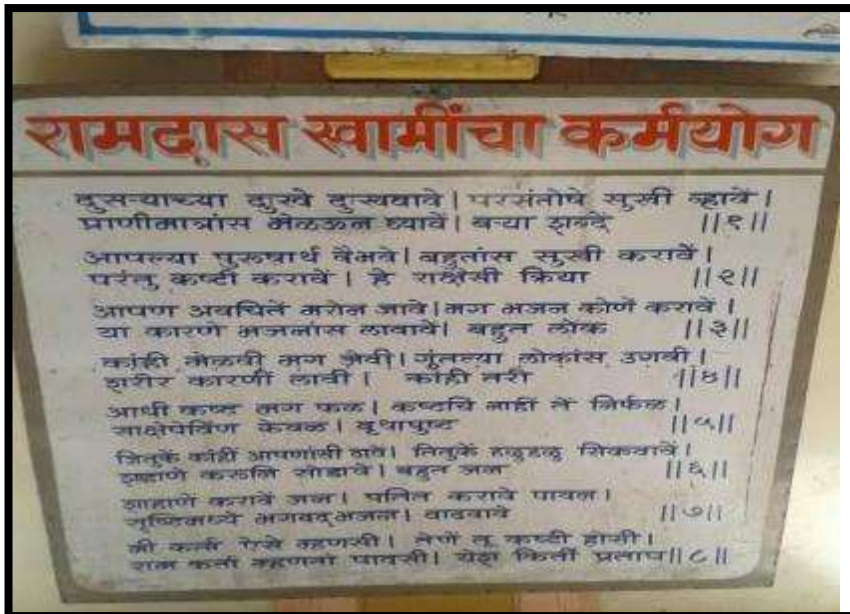 रामदास स्वामींचा कर्मयोग
दुसऱ्याच्या दुःखे दुःखवावे | परसंतोषे सुखी व्हावे |
प्राणीमात्रांस मेळऊन घ्यावें | बऱ्या शब्दें ||१||
आपल्या पुरुषार्थ वैभवे | बहुतांस सुखी करावें |
परंतु कष्टी करावें | हे राक्षेसी क्रिया ||२||
आपण अवचितें मरोन जावे | मग भजन कोणें करावे |
या कारणे भजनांस लावावें | बहुत लोक ||३||
कांही मेळवी मग जेवी | गुंतल्या लोकांस उगवी |
शरीर कारणीं लावी | कांही तरी ||४||
आधी कष्ट मग फळ | कष्टचि नाहीं तें निर्फळ |
साक्षेपेविण केवळ | वृथापुष्ट ||५||
जितुकें कांहीं आपणांसी ठावे | तितुकें हळुहळु सिकवावें |
शहाणे करुनि सोडावे | बहुत जन ||६||
शाहाणे करावे जन | पतित करावे पावन |
सृष्टिमध्ये भगवद्भजन | वाढवावे ||७||
मी कर्ता ऐसे म्हणसी | तेणें तू कष्टी होसी |
राम कर्ता म्हणतां पावसी | येश किर्ती प्रताप ||८||